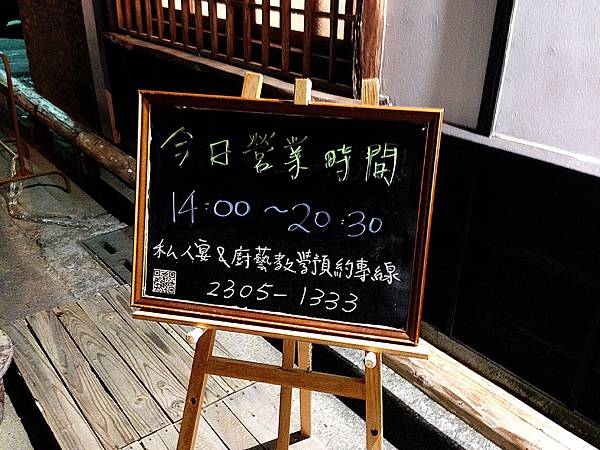 今日營業時間
14:00~20:30
私人宴&廚藝教學預約專線
2305-1333